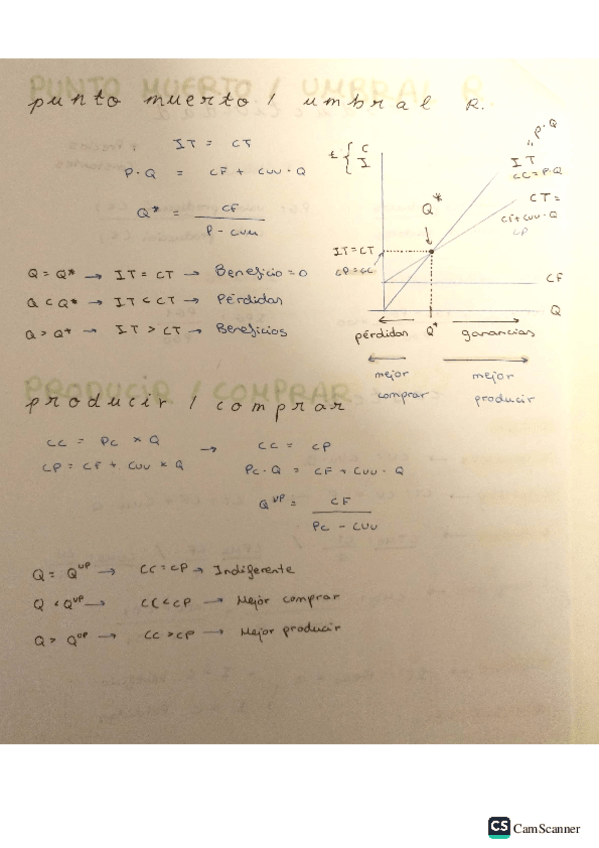 punto muerto / umbral R.
IT = CT
P · Q = CF + CVu · Q
Q* = CF / P - CVu
Q = Q* → IT = CT → Beneficio = 0
Q < Q* → IT < CT → Pérdidas
Q > Q* → IT > CT → Beneficios
€ { C
I
IT = P·Q
CC = P·Q
CT =
CF + CVu · Q
CP
Q*
IT = CT
CP = CC
CF
Q
pérdidas Q* ganancias
mejor comprar
mejor producir
producir / comprar
CC = Pc × Q → CC = CP
CP = CF + CVu × Q Pc · Q = CF + CVu · Q
Q^UP = CF / Pc - CVu
Q = Q^UP → CC = CP → Indiferente
Q < Q^UP → CC < CP → Mejor comprar
Q > Q^UP → CC > CP → Mejor producir
CS CamScanner